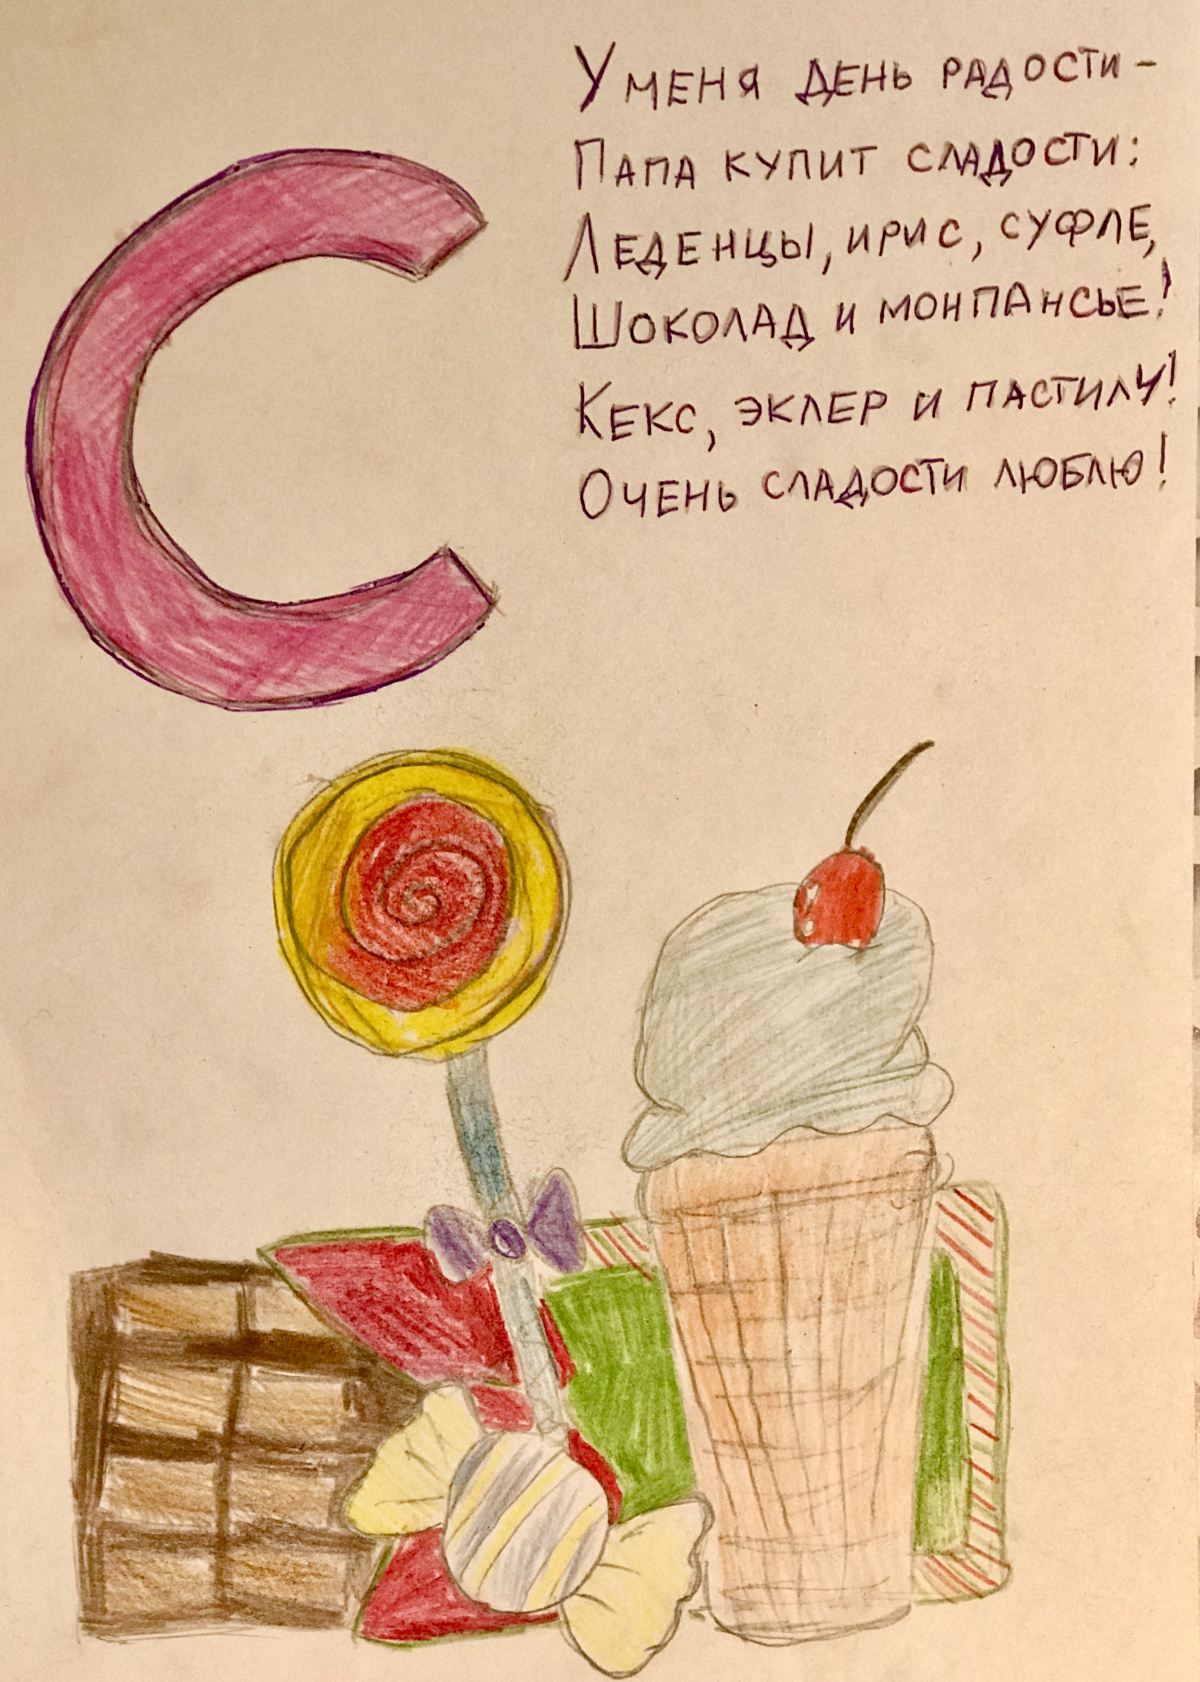 С
У меня день радости –
Папа купит сладости:
Леденцы, ирис, суфле,
Шоколад и монпансье!
Кекс, эклер и пастилу!
Очень сладости люблю!